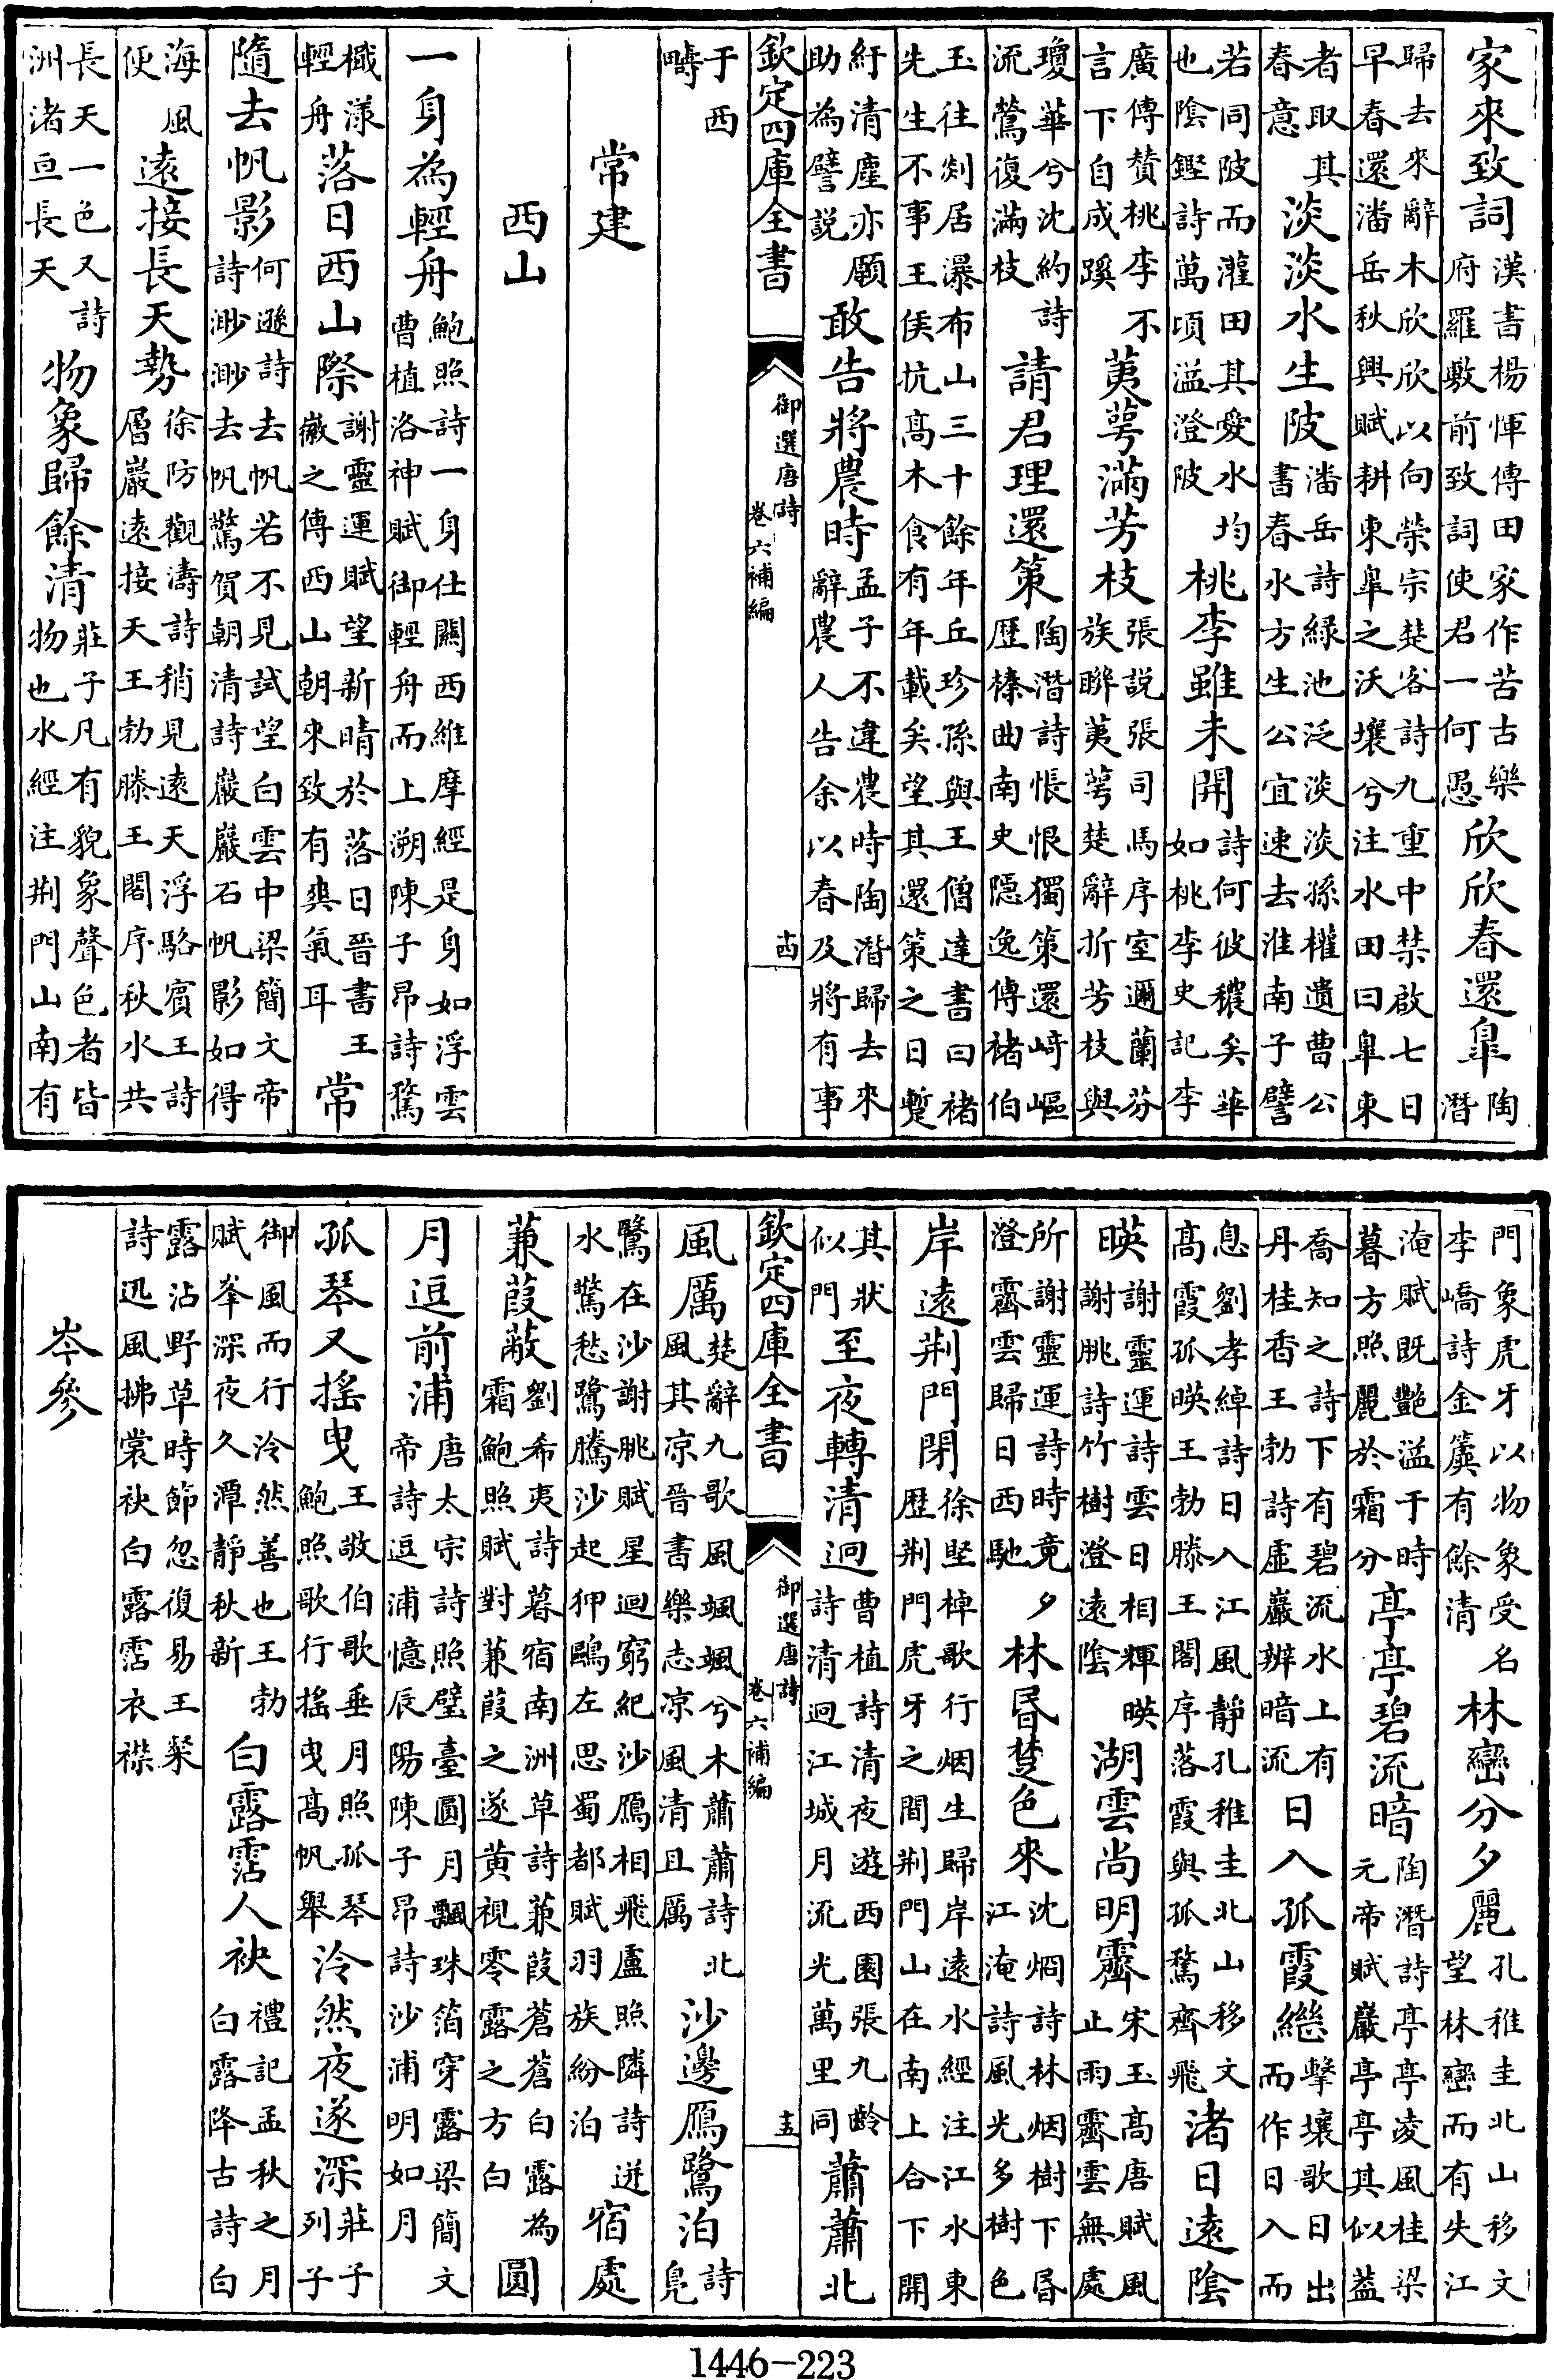 家來致詞漢書楊惲傳田家作苦古樂府羅敷前致詞使君一何愚欣欣春還臯陶潛
歸去來辭木欣欣以向榮宗楚客詩九重中禁啟七日早春還潘岳秋興賦耕東臯之沃壤兮注水田曰臯東
者取其春意淡淡水生陂潘岳詩綠池泛淡淡孫權遺曹公書春水方生公宜速去淮南子譬
若同陂而灌田其愛水均也陰鏗詩萬頃溢澄陂桃李雖未開詩何彼穠矣華如桃李史記李
廣傳贊桃李不言下自成蹊荑萼滿芳枝張説張司馬序室邇蘭芬族聯荑萼楚辭折芳枝與
瓊華兮沈約詩流鶯復滿枝請君理還策陶潛詩悵恨獨策還﨑嶇歷榛曲南史隱逸傳褚伯
玉往剡居瀑布山三十餘年丘珍孫與王僧達書曰褚先生不事王侯抗高木食有年載矣望其還策之日蹔
紆清塵亦願助為譬説敢告將農時孟子不違農時陶潛歸去來辭農人告余以春及將有事
欽定四庫全書 御選唐詩 卷六補編 十四
于西疇
常建
西山
一身為輕舟鮑照詩一身仕關西維摩經是身如浮雲曹植洛神賦御輕舟而上溯陳子昂詩鶩
檝漾輕舟落日西山際謝靈運賦望新晴於落日晉書王徽之傳西山朝來致有爽氣耳常
隨去帆影何遜詩去帆若不見試望白雲中梁簡文帝詩渺渺去帆驚賀朝清詩巖巖石帆影如得
海風便遠接長天勢徐防觀濤詩稍見遠天浮駱賓王詩層巖遠接天王勃滕王閣序秋水共
長天一色又詩洲渚亘長天物象歸餘清莊子凡有貌象聲色者皆物也水經注荆門山南有
門象虎牙以物象受名李嶠詩金䕠有餘清林巒分夕麗孔稚圭北山移文望林巒而有失江
淹賦既艷溢于時暮方照麗於霜分亭亭碧流暗陶潛詩亭亭凌風桂梁元帝賦巖亭亭其似蓋
喬知之詩下有碧流水上有丹桂香王勃詩虛巖辨暗流日入孤霞繼擊壤歌日出而作日入而
息劉孝綽詩日入江風靜孔稚圭北山移文高霞孤暎王勃滕王閣序落霞與孤鶩齊飛渚日遠陰
暎謝靈運詩雲日相輝暎謝朓詩竹樹澄遠陰湖雲尚明霽宋玉高唐賦風止雨霽雲無處
所謝靈運詩時竟夕澄霽雲歸日西馳林昏楚色來沈烱詩林烟樹下昏江淹詩風光多樹色
岸遠荆門閉徐堅棹歌行烟生歸岸遠水經注江水東歷荆門虎牙之間荆門山在南上合下開
其狀似門至夜轉清迥曹植詩清夜遊西園張九齡詩清迥江城月流光萬里同蕭蕭北
欽定四庫全書 御選唐詩 卷六補編 十五
風厲楚辭九歌風颯颯兮木蕭蕭詩北風其凉晉書樂志凉風清且厲沙邊鴈鷺泊詩鳧
鷖在沙謝朓賦星迴窮紀沙鴈相飛盧照隣詩迸水驚愁鷺騰沙起狎鷗左思蜀都賦羽族紛泊宿處
蒹葭蔽劉希夷詩暮宿南洲草詩蒹葭蒼蒼白露為霜鮑照賦對蒹葭之遂黄視零露之方白圓
月逗前浦唐太宗詩照璧臺圓月飄珠箔穿露梁簡文帝詩逗浦憶辰陽陳子昂詩沙浦明如月
孤琴又搖曳王敬伯歌垂月照孤琴鮑照歌行搖曳高帆舉泠然夜遂深莊子列子
御風而行泠然善也王勃賦峯深夜久潭靜秋新白露霑人袂禮記孟秋之月白露降古詩白
露沾野草時節忽復易王粲詩迅風拂裳袂白露霑衣襟
岑參
1446-223